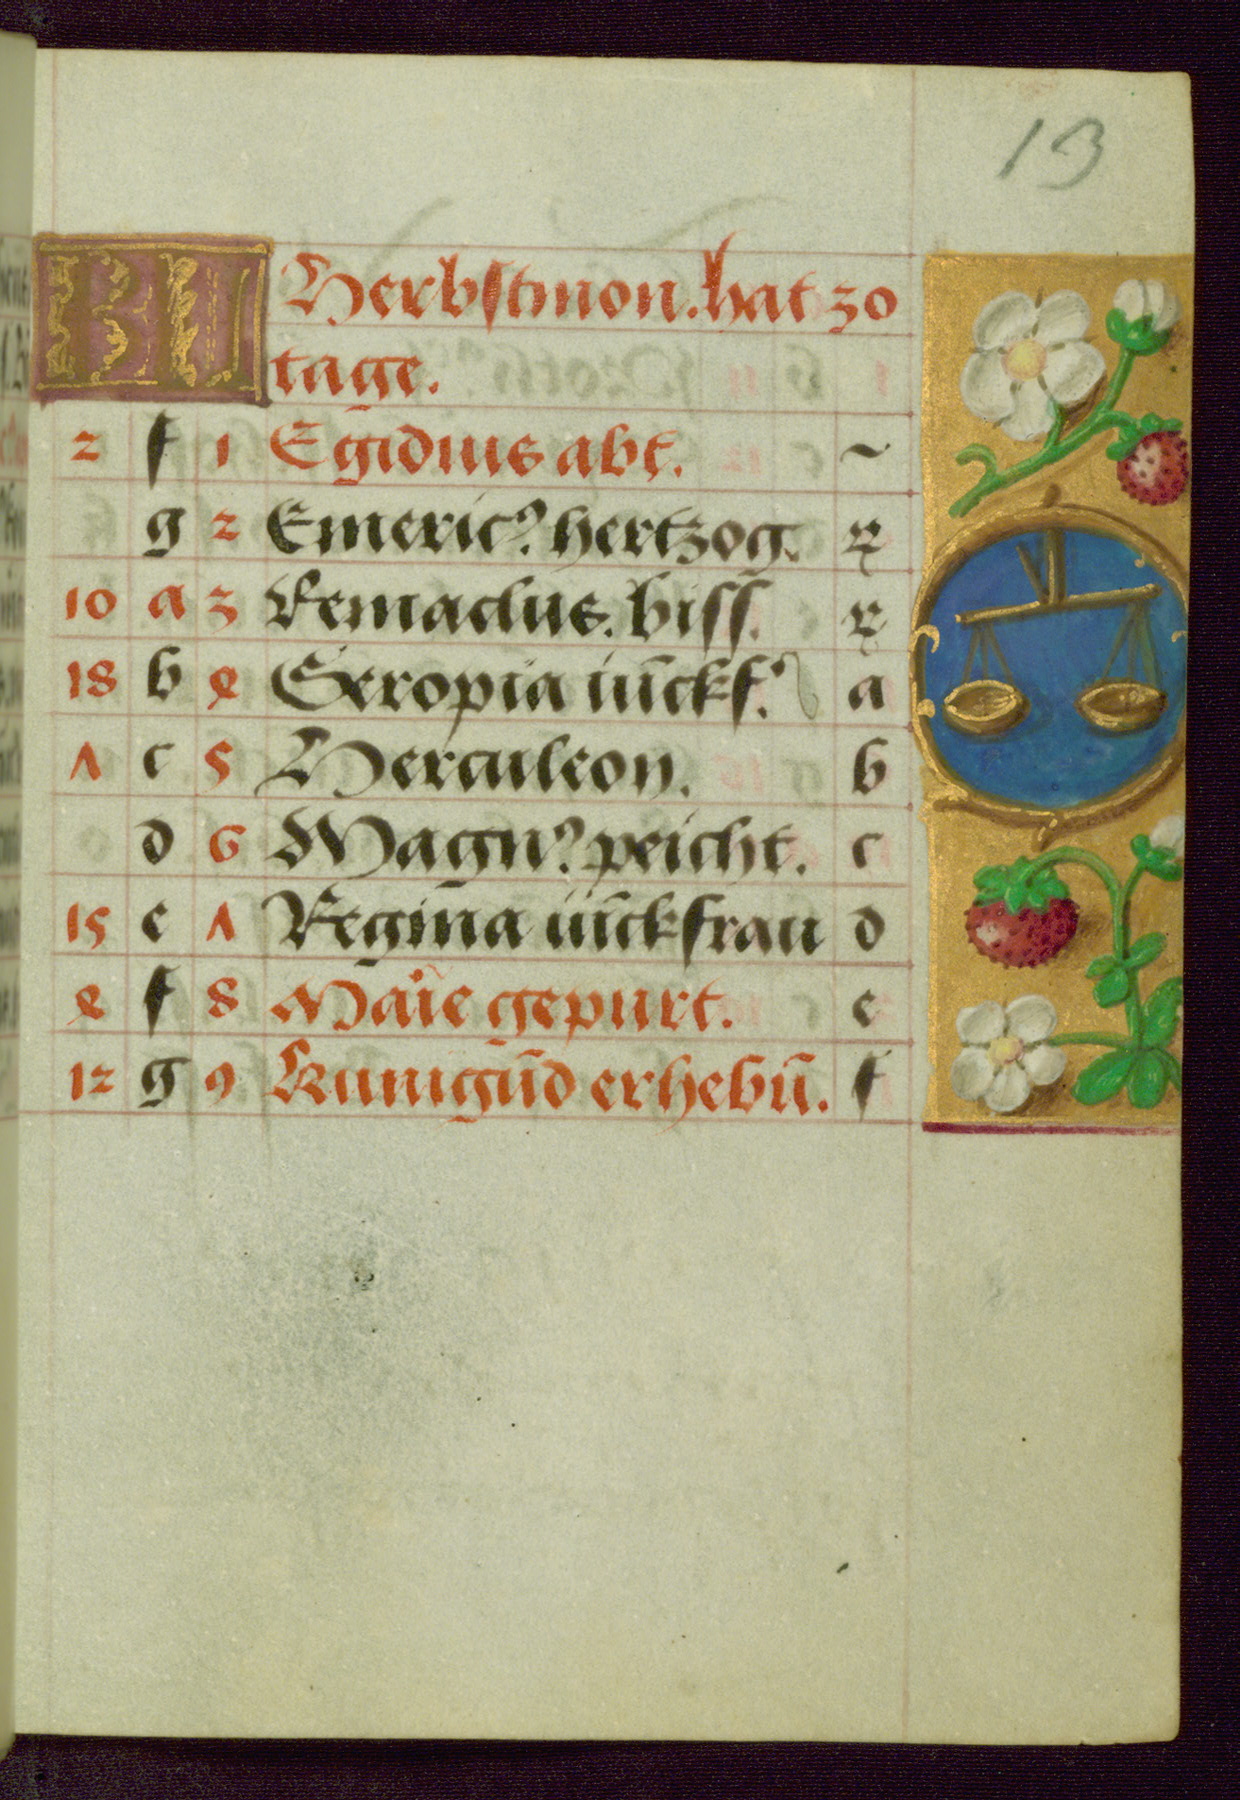 13
KL Herbstmon. hat 30
tage.
2 f 1 Egidius abt. ~
g 2 Emericꝰ. hertzog. x
10 a 3 Remaclus. biss. x
18 b 4 Exropia iūckf. a
7 c 5 Herculeon. b
d 6 Magnꝰ. peicht. c
15 e 7 Regina iūckfrau d
4 f 8 Marie gepurt. e
12 g 9 Kunigūd erhebū. f